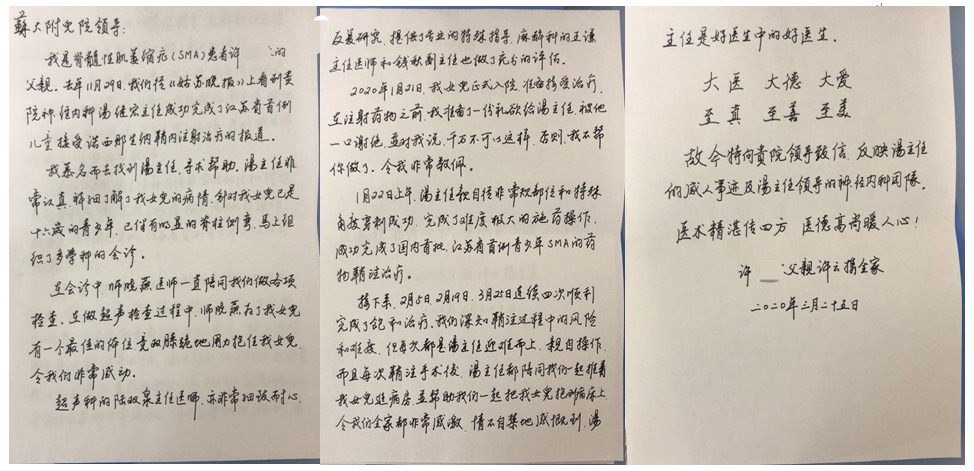 蘇大附兒院领导:
我是脊髓性肌萎缩症(SMA)患者许 的
父親。去年11月29日,我们從《姑苏晚报》上看到貴
院神经内科湯继宏主任成功完成了江苏省首例
儿童接受诺西那生纳鞘内注射治疗的报道。
我慕名而去找到湯主任,寻求帮助。湯主任非
常认真、详细了解了我女兒的病情,针对我女兒已是
十六歲的青少年,已伴有明显的脊柱侧弯,馬上组
织了多学科的会诊。
在会诊中,师晓燕医师一直陪同我们做各项
检查。在做超声检查过程中,师晓燕为了我女兒
有一个最佳的体位,竟双膝跪地用力抱住我女兒,
令我们非常感动。
超声科的陆政泉主任医师,亦非常细致耐心,
反复研究,提供了专业的特殊指导。麻醉科的王谦
主任医师和钱秋菊主任也做了充分的评估。
2020年1月21日,我女兒正式入院,准备接受治疗。
在注射药物之前,我准备了一份礼欲给湯主任,被他
一口谢绝,並对我说,千万不可以这样,否则,我不帮
你做了。令我非常敬佩。
1月22日上午,湯主任親自從非常规部位和特殊
角度穿刺成功,完成了难度极大的施药操作,
成功完成了国内首批、江苏省首例青少年SMA的药
物鞘注治疗。
接下来,2月5日、2月19日、3月25日连续四次顺利
完成了饱和治疗。我们深知鞘注过程中的风险
和难度,但每次都是湯主任迎难而上,親自操作,
而且每次鞘注手术後,湯主任都陪同我们一起推着
我女兒进病房,並帮助我们一起把我女兒抱到病床上,
令我们全家都非常感激,情不自禁地感慨到,湯
主任是好医生中的好医生。
大医 大德 大爱
至真 至善 至美
故今特向貴院领导致信,反映湯主任
的感人事迹及湯主任领导的神经内科团隊。
医术精湛传四方 医德高尚暖人心!
许 父親许云揚全家
二〇二〇年三月二十五日